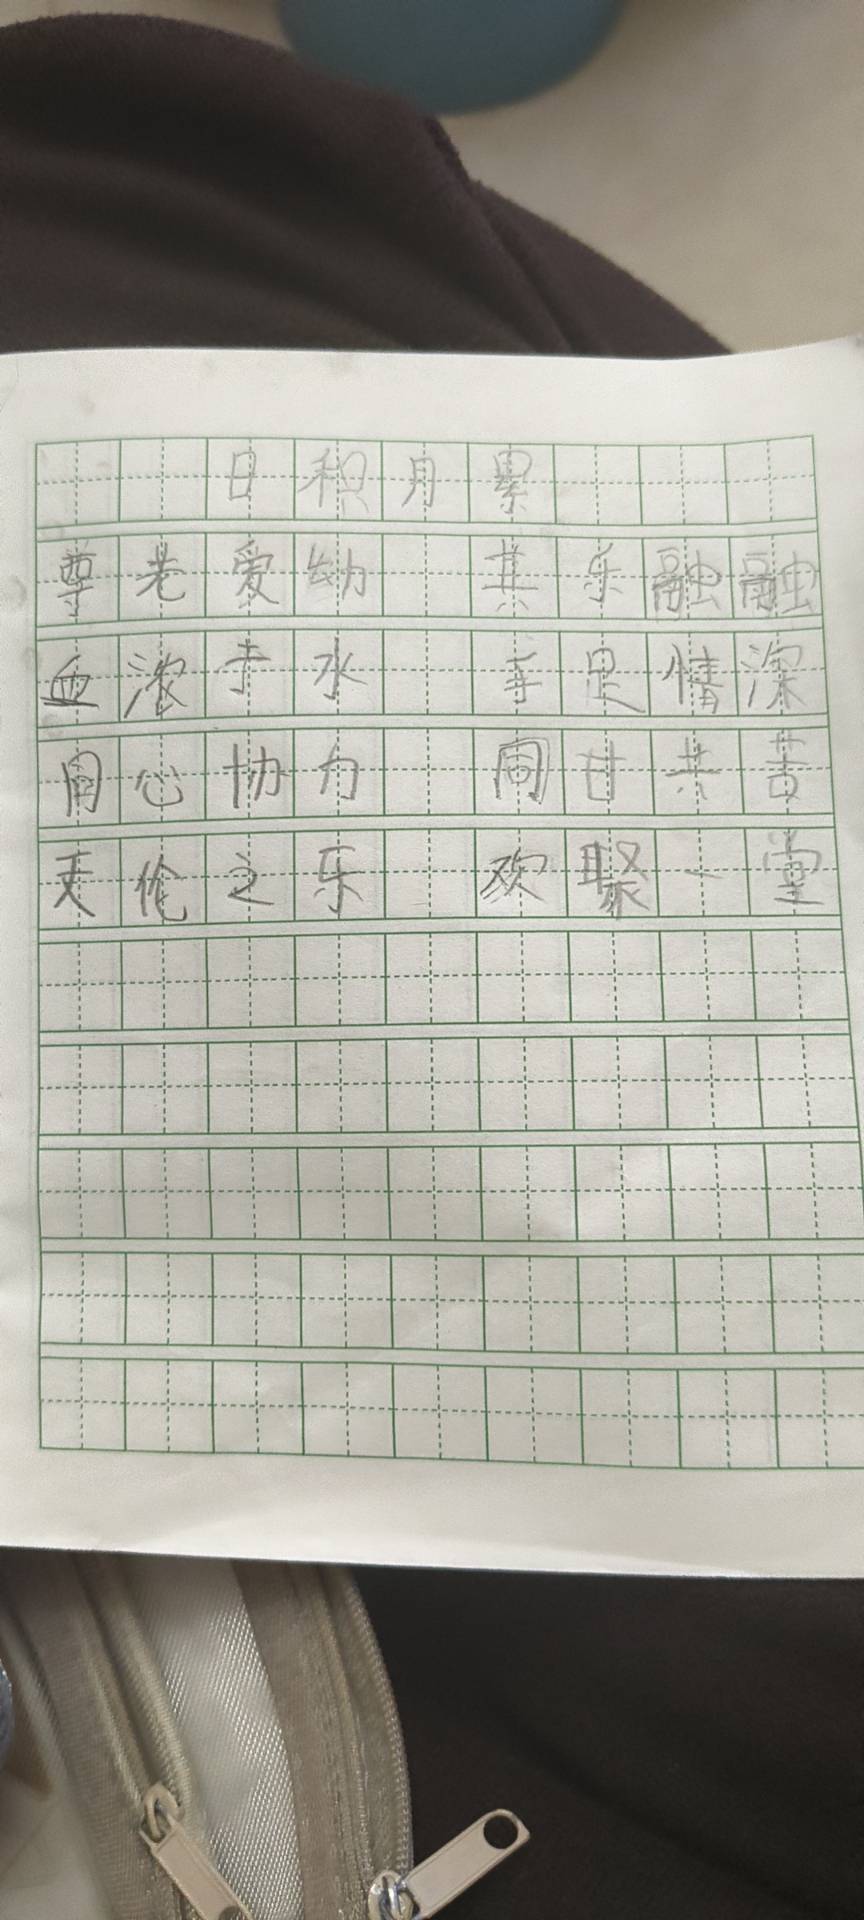 日积月累
尊老爱幼 其乐融融
血浓于水 手足情深
同心协力 同甘共苦
天伦之乐 欢聚一堂